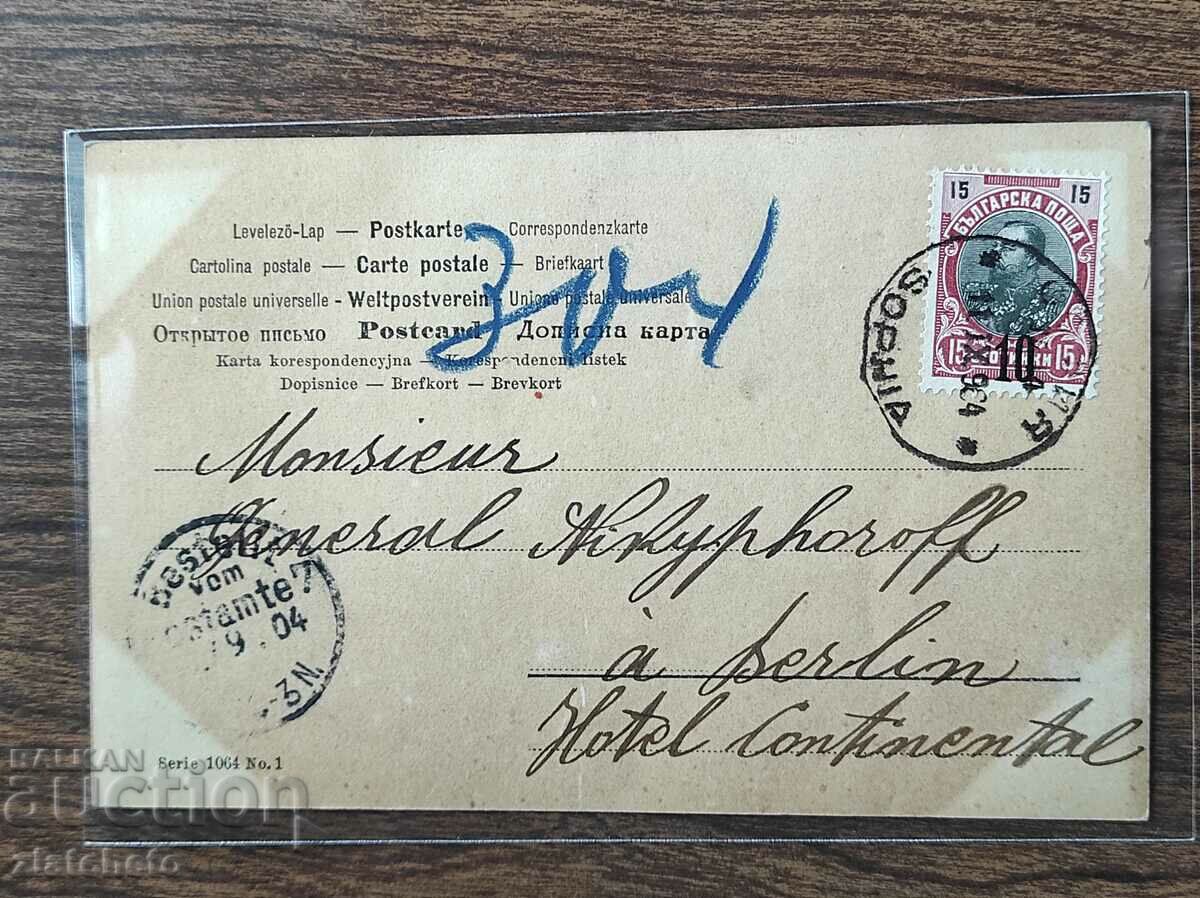 Levelező-Lap — Postkarte — Correspondenzkarte
Cartolina postale — Carte postale — Briefkaart
Union postale universelle - Weltpostverein - Unione postale universale
Открытое письмо Postcard Дописна карта
Karta korespondencyjna — Korespondenční lístek
Dopisnice — Brefkort — Brevkort
15 15
БЪЛГАРСКА ПОЩА
15 15
10
SOPHIA
Monsieur
General Nikyphoroff
à Berlin
Hotel Continental
Bestellt
vom
Postamte 7
9 . 04
-3N.
Serie 1064 No. 1
BALKAN
auction
zlatchefo